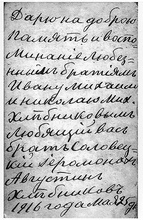 Дарю на доброю
память и воспо-
минание Любез-
нымъ братіямъ
Ивану Михаил
и Николаю Мих.
Хлѣбниковымъ
Любящій васъ
братъ Соловец-
кій Іеромонахъ
Августинъ
Хлѣбниковъ
1916 года Мая 25 дня